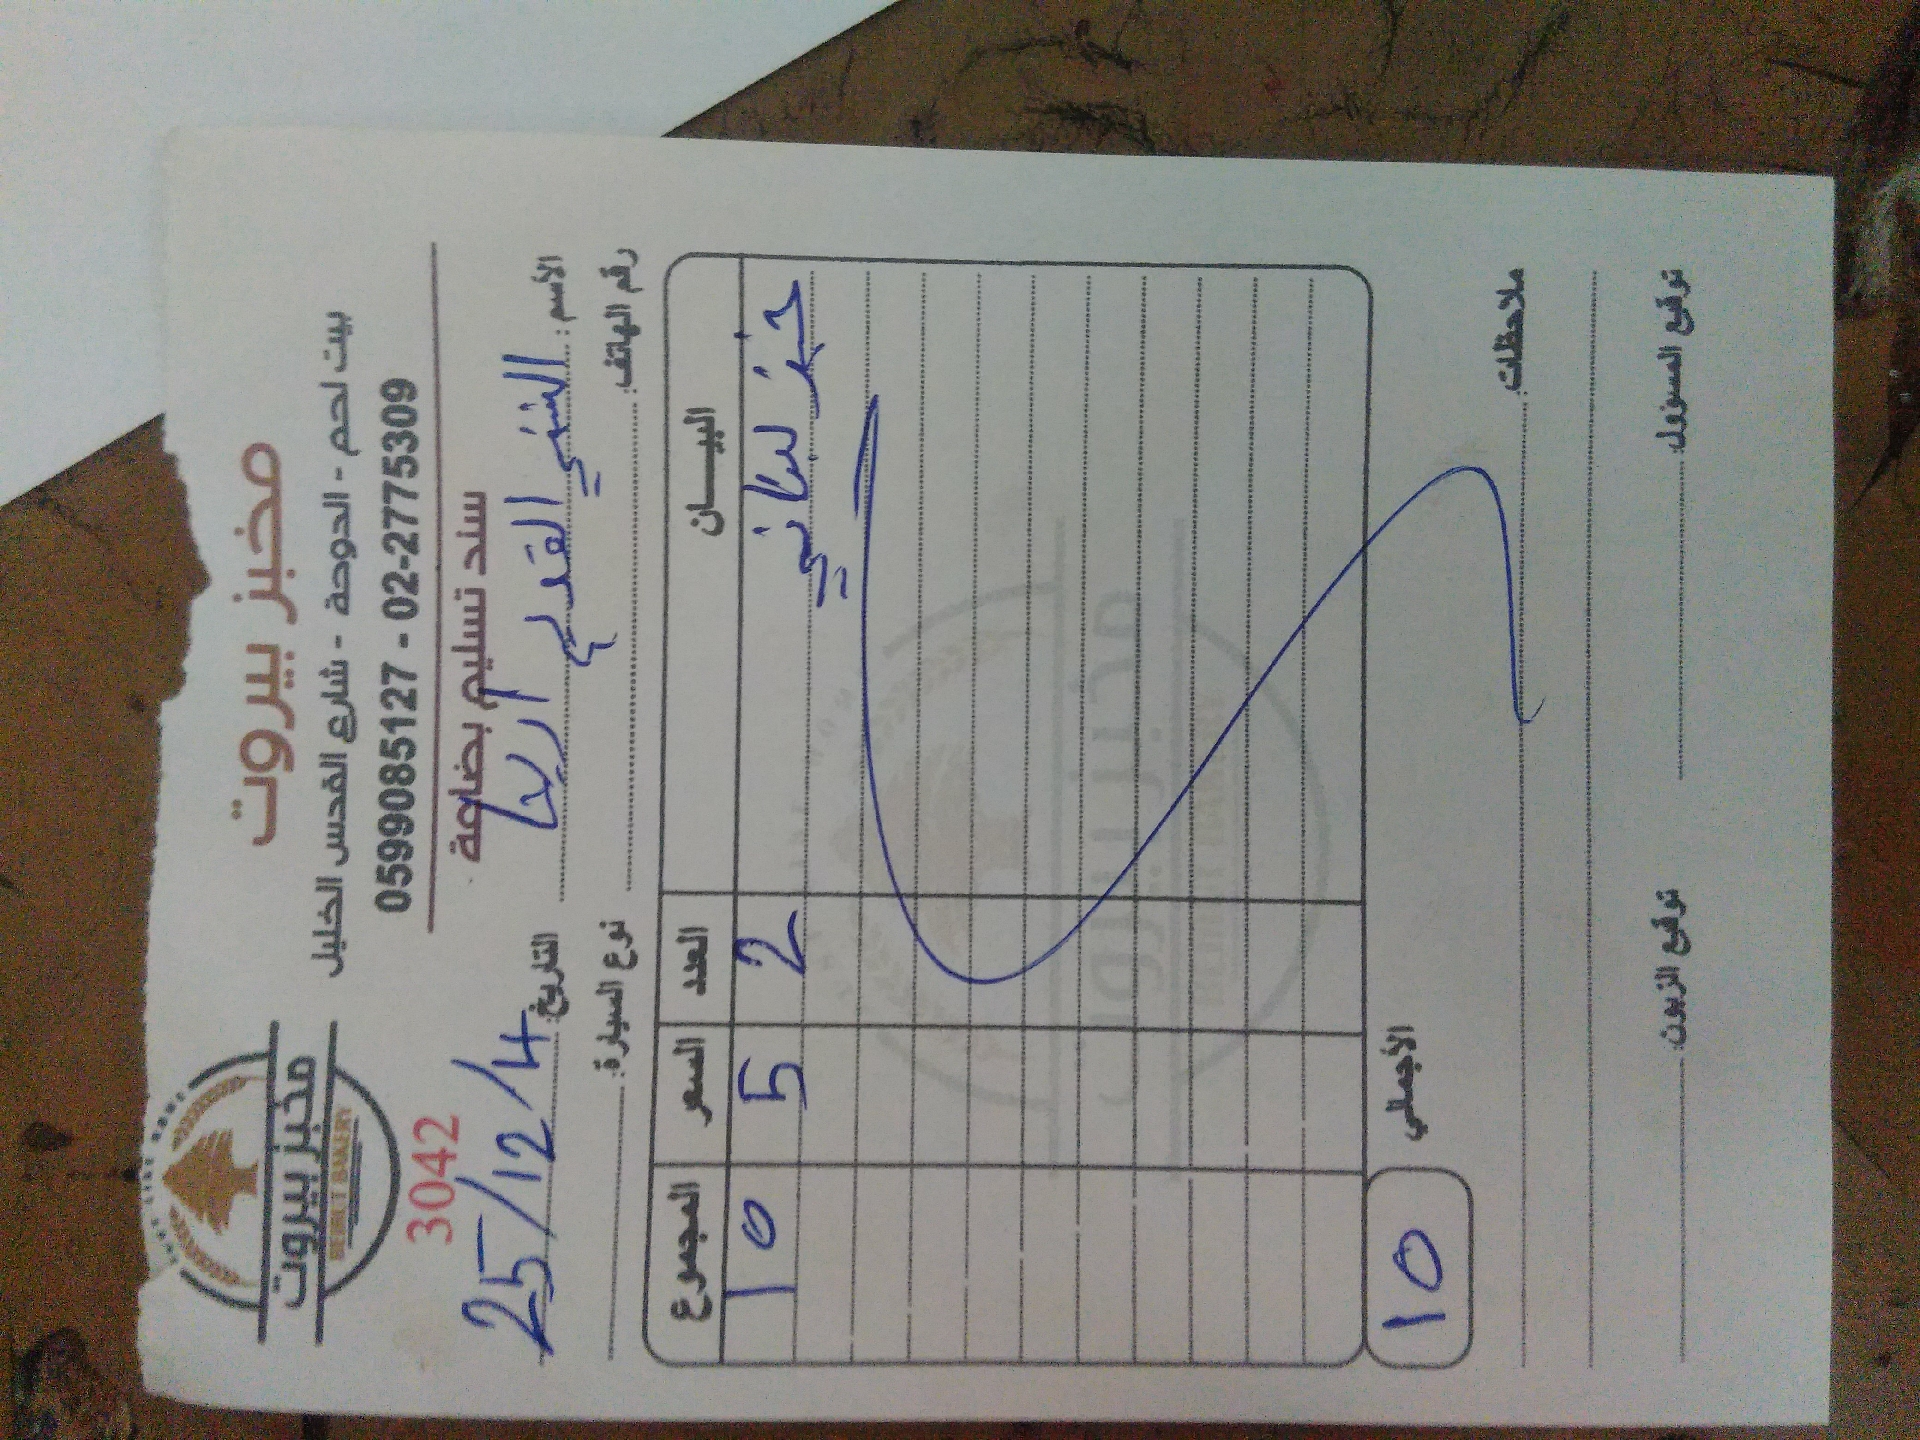 مخبز بيروت
بيت لحم - الدوحة - شارع القدس الخليل
0599085127 - 02-2775309
مخبز بيروت
BEIRUT BAKERY
3042
سند تسليم بضاعة
الأسم: الشني القدس اريحا
التاريخ: 25/12/4
رقم الهاتف:
نوع السيارة:
البيـــان العدد السعر المجموع
خبز لبناني 2 5 10
الأجمالي 10
ملاحظات:
توقيع المسؤول
توقيع الزبون: